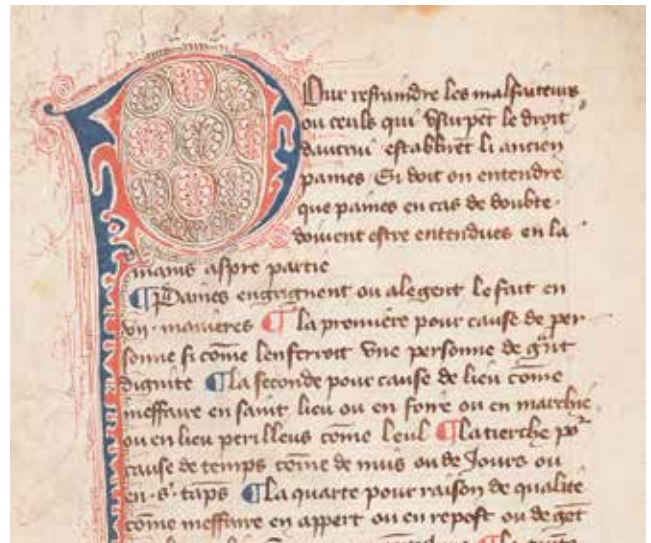 POur restraindre les malfaiteurs
ou ceuls qui vsurpēt le droit
dautrui establirēt li ancien
paines Si doit on entendre
que paines en cas de doubte.
doiuent estre entendues en la
mains aspre partie
¶ Paines engrignent ou alegent le fait en
vii. manieres ¶ la premiere pour cause de per
sonne si cōme vne personne de
dignite ¶ la seconde pour cause de lieu cōme
meffaire en saint lieu ou en foire ou en marchie
ou en lieu perilleus cōme ¶ la tierche por
cause de temps cōme de nuis ou de Jours ou
en ¶ La quarte pour raison de qualite
cōme meffaire en appert ou en repost ou de